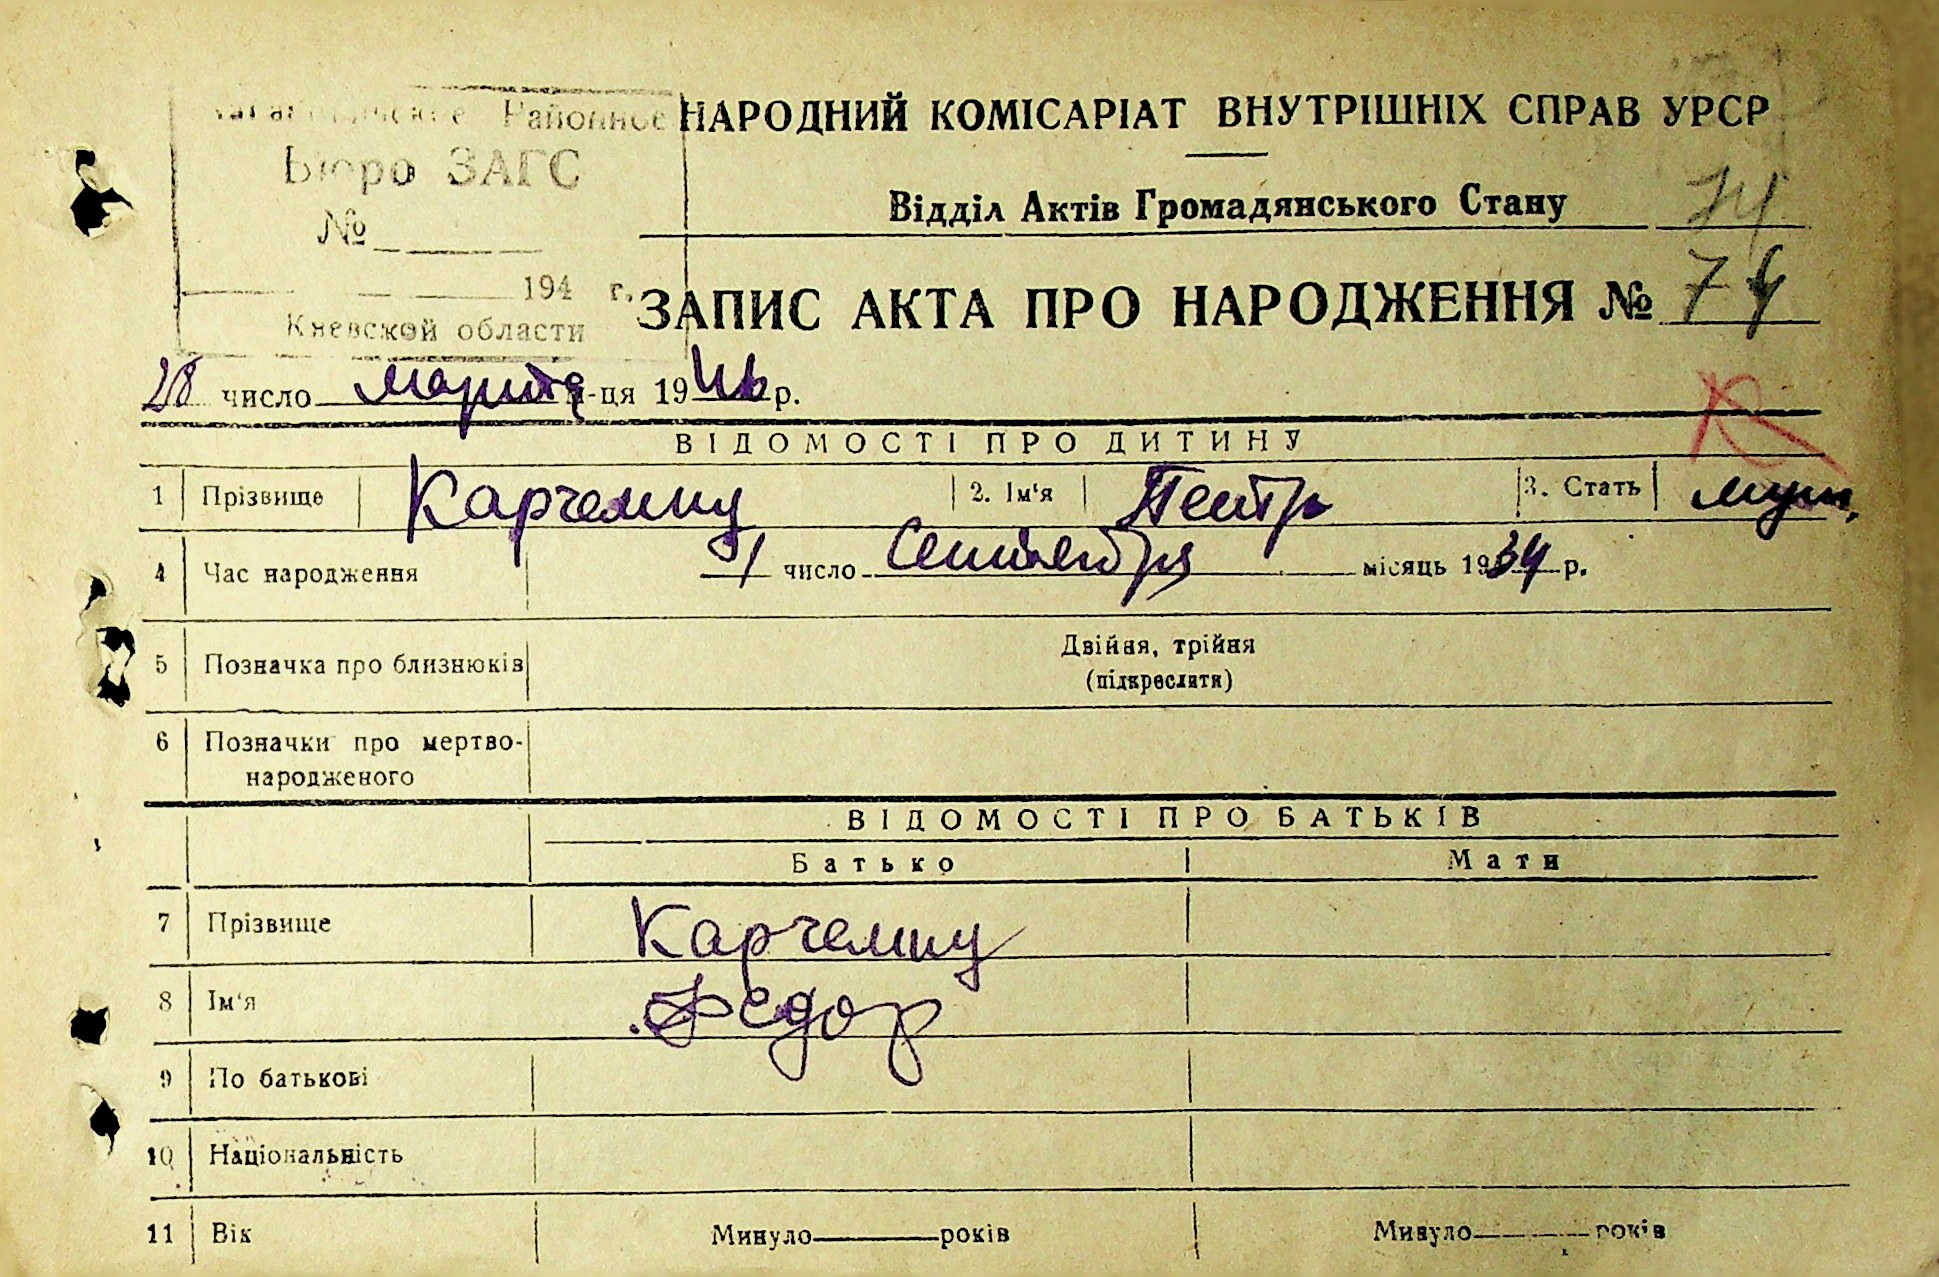 Районное
Бюро ЗАГС
№
194 г.
Киевской области
НАРОДНИЙ КОМІСАРІАТ ВНУТРІШНІХ СПРАВ УРСР
Відділ Актів Громадянського Стану
74
ЗАПИС АКТА ПРО НАРОДЖЕННЯ № 74
28 число марта м-ця 1946 р.
ВІДОМОСТІ ПРО ДИТИНУ
1 Прізвище Карчемну 2. Ім'я Пентр 3. Стать муж.
4 Час народження 1 число Сентября місяць 1934 р.
5 Позначка про близнюків Двійня, трійня
(підкреслити)
6 Позначки про мертво-
народженого
ВІДОМОСТІ ПРО БАТЬКІВ
Батько Мати
7 Прізвище Карчемну
8 Ім'я Федор
9 По батькові
10 Національність
11 Вік Минуло років Минуло років